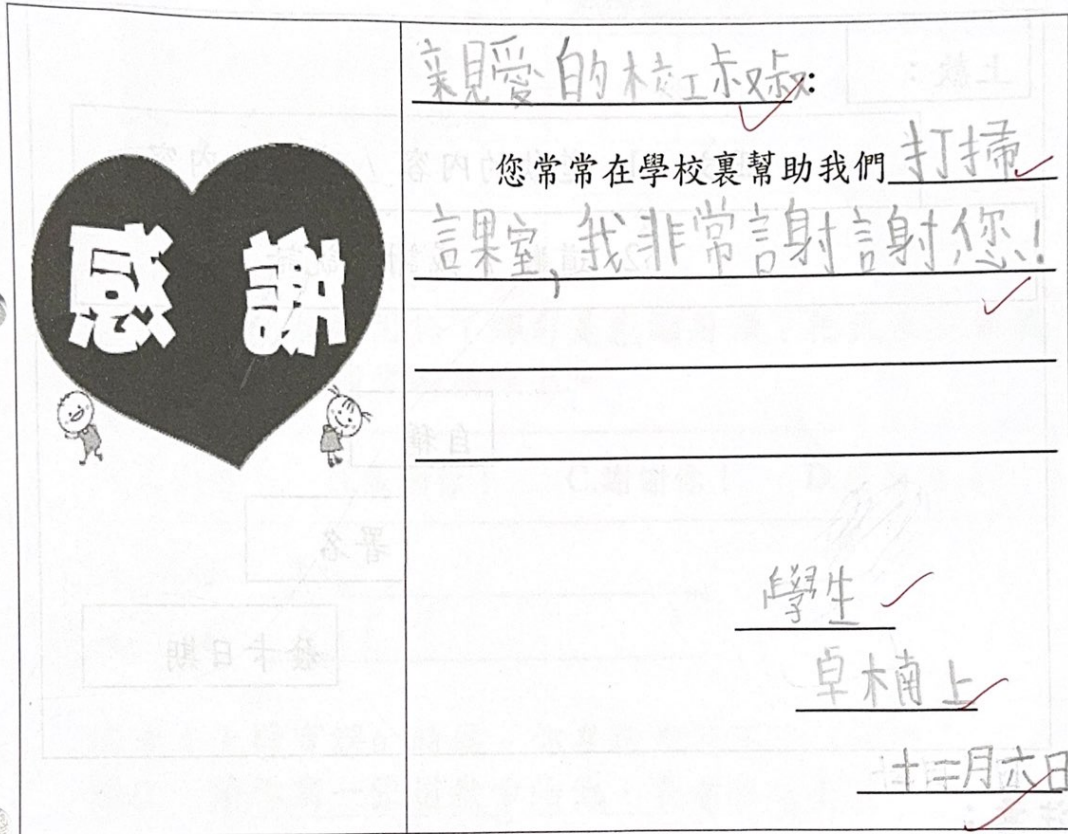 感謝
親愛的校工叔叔:
您常常在學校裏幫助我們打掃
課室,我非常謝謝您!
學生
卓楠上
十二月六日